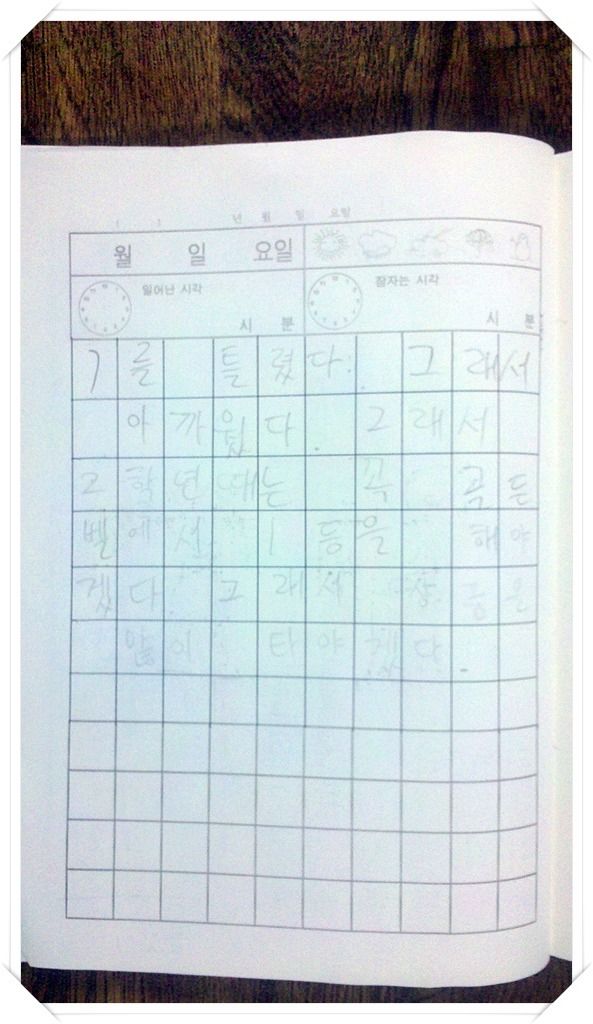 ( ) 년 월 일 요일
월 일 요일
일어난 시각 잠자는 시각
시 분 시 분
기를 틀렸다. 그래서
아까웠다. 그래서
2학년 때는 꼭 골든
벨에서 1등을 해야
겠다. 그래서 상금을
많이 타야겠다.